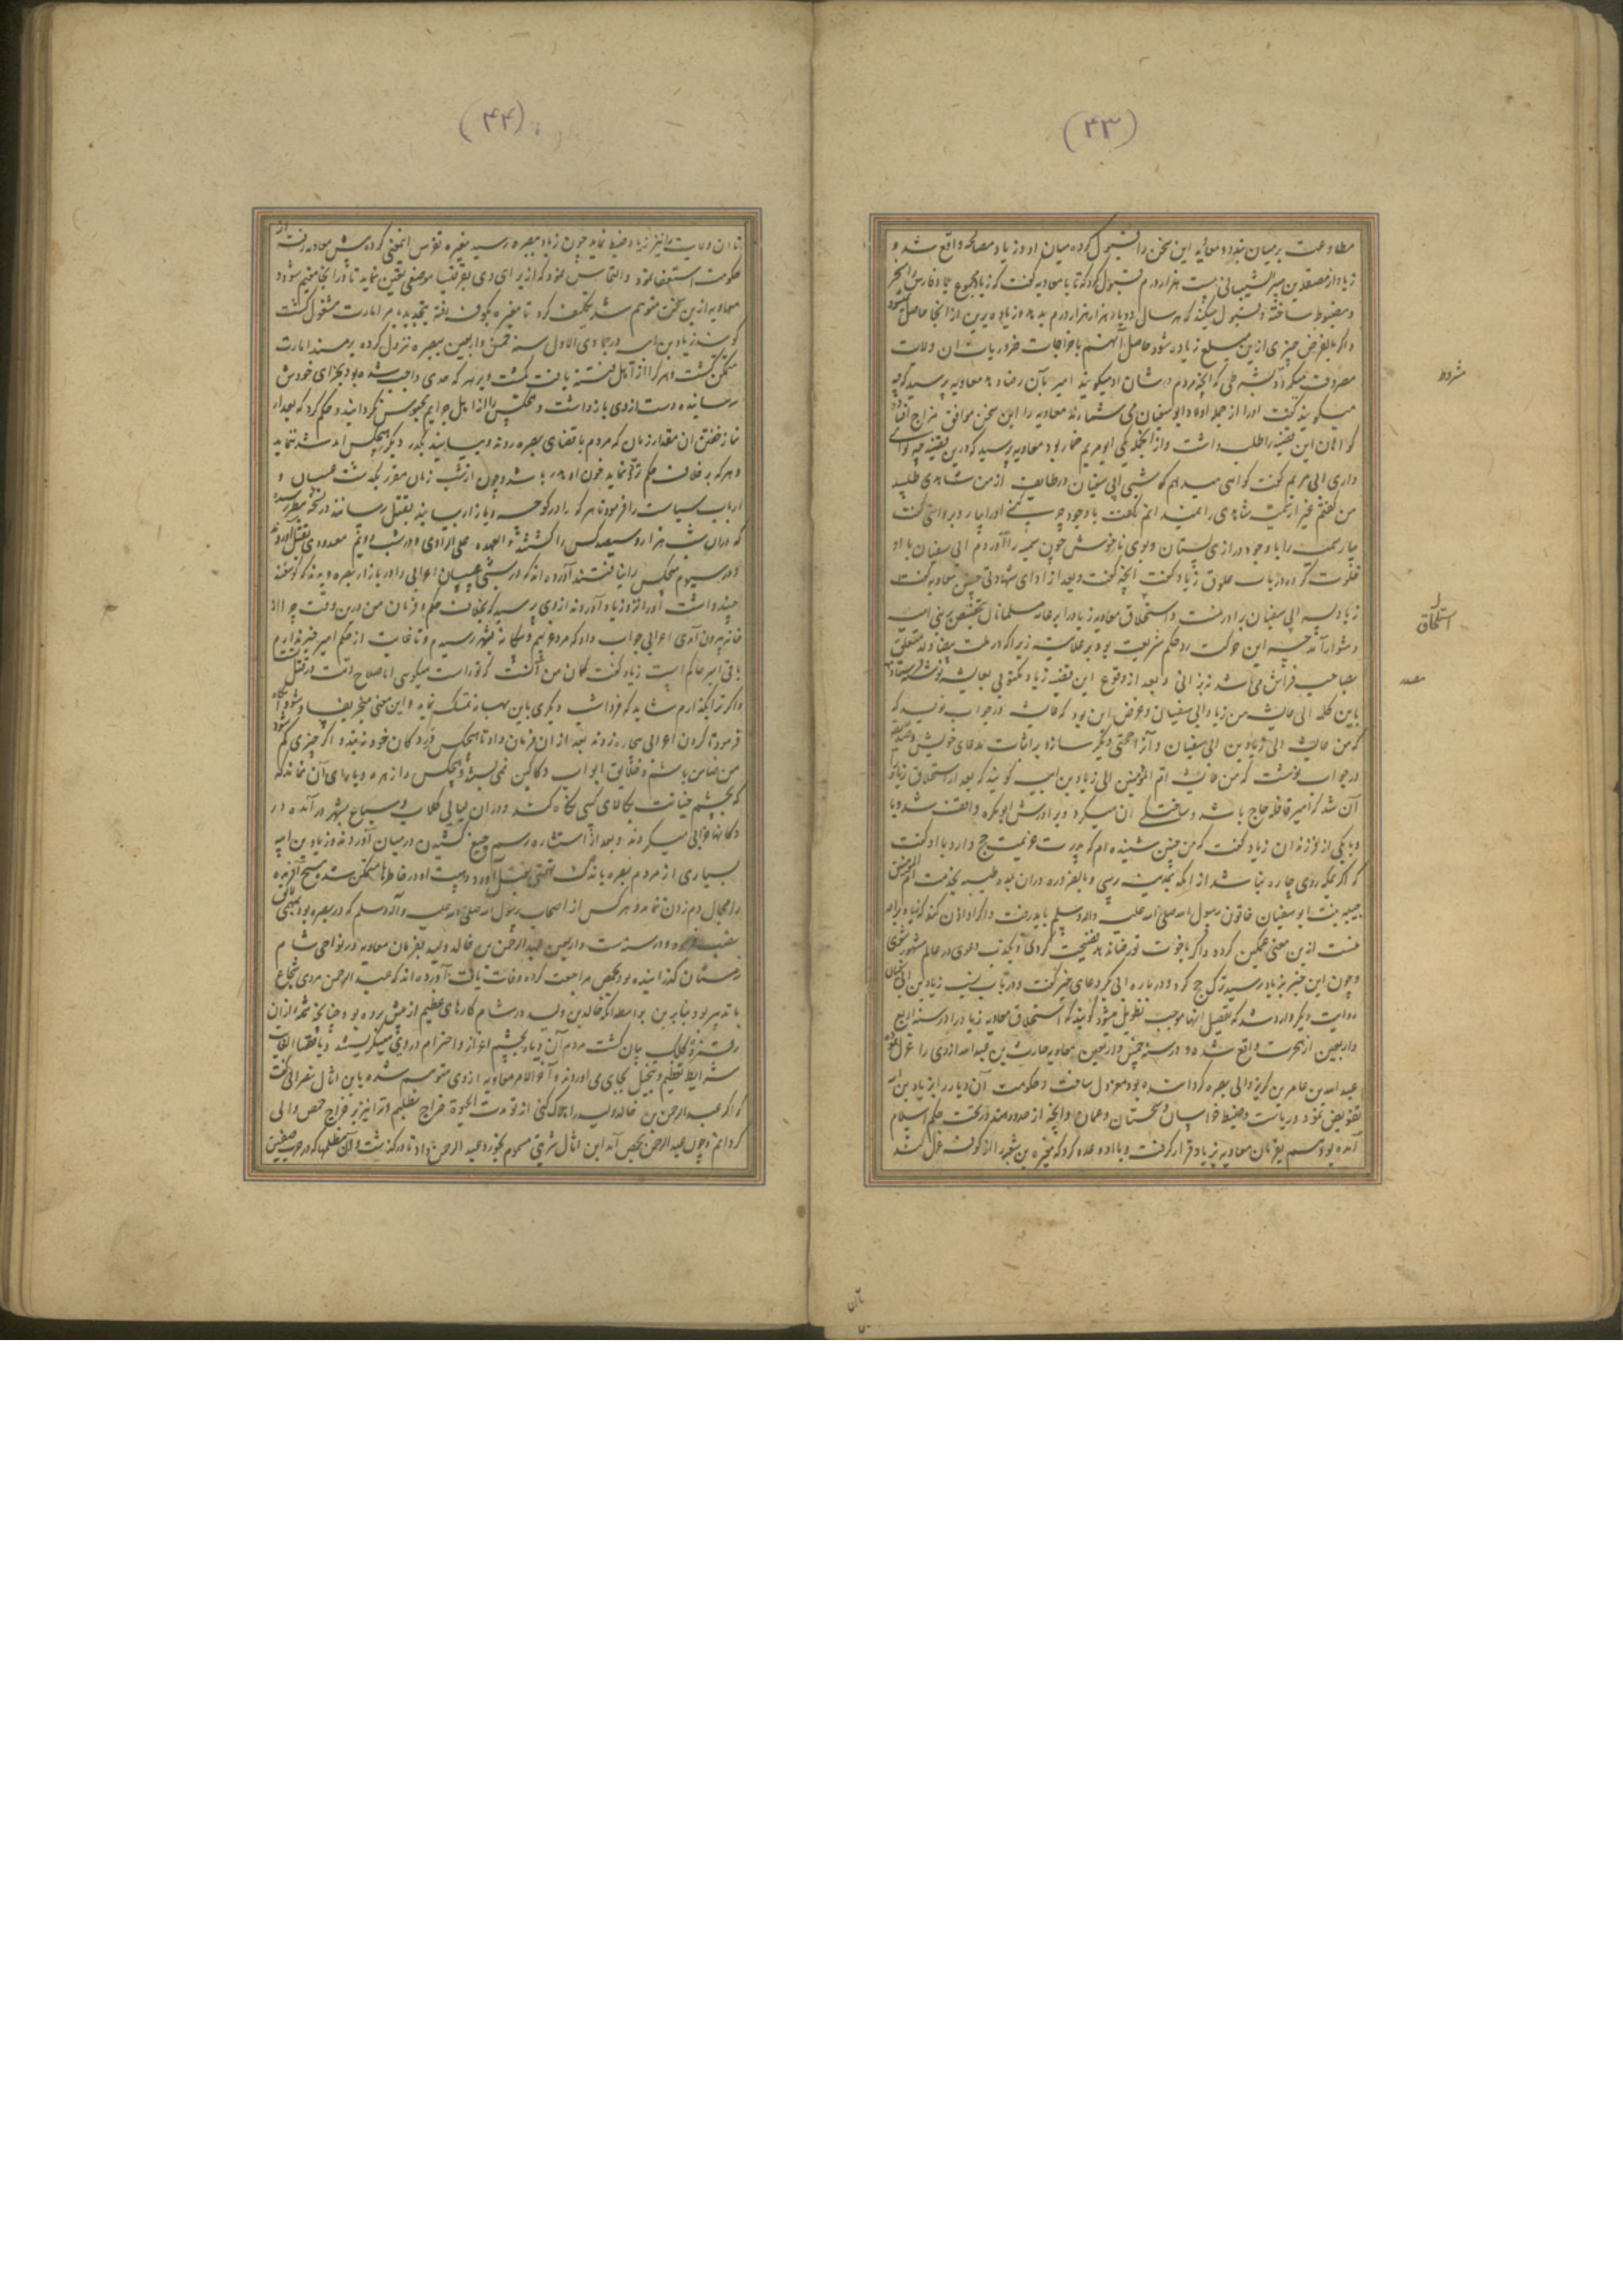 (۴۳)
مطاوعت بر میان بندد و معاویه این سخن را قبول کرده میان او و زیاد مصالحه واقع شد و
زیاد از مصقلة بن هبیر الشیبانی بیست هزار درم قبول کرد که تا با معاویه گفت که زیاد مجموع
و مضبوط ساخته و قبول میکند که هر سال دو بار هزار هزار درم بدهد و زیاده برین از آنجا حاصل
و اگر بالفرض چیزی ازین مبلغ زیاد شود حاصل آنهم باخراجات ضروریات آن ولایت
مصروف میگردد بشرطی که آنچه مردم در شان او میگویند امیر بآن رضا دهد معاویه پرسید که چه
میگویند گفت او را از جمله اولاد ابو سفیان می شمارند معاویه را این سخن موافق مزاج افتاد
گواهان این قضیه را طلب داشت و از آنجمله یکی ابو مریم خمار بود معاویه پرسید که درین قضیه چه گواهی
داری ابی مریم گفت گواهی میدهم که شبی ابی سفیان در طایف از من شاهدی طلبید
من گفتم غیر از سمیه شاهدی را نمیدانم گفت با وجود چرب کنی او را بیار و بروایتی گفت
بیار سمیه را با وجود درازی پستان و بوی ناخوش چون سمیه را آوردم ابی سفیان با او
خلوت کرده در باب علوق زیاد گفت آنچه گفت و بعد از ادای شهادتی چنین معاویه گفت
زیاد پسر ابی سفیان برادر منست و استلحاق معاویه زیاد را بر عامه مسلمانان بتخصیص بر بنی امیه
دشوار آمد چه این حرکت رد حکم شریعت بود بر علانیه زیرا که در ملت بیضا ولد متعلق
بصاحب فراش می باشد نه بزانی و بعد از وقوع این قضیه زیاد مکتوبی بعایشه نوشته
باین کلمه الی عایشه من زیاد ابی سفیان و غرض این بود که عایشه در جواب نویسد که
که من عایشه الی زیاد بن ابی سفیان و آنرا حجتی دیگر سازد بر اثبات مدعای خویش
در جواب نوشت که من عایشه ام المؤمنین الی زیاد بن ابیه گویند که بعد از استلحاق زیاد
آن شد که امیر قافله حاج باشد و ساختگی آن میکرد و برادرش ابو بکره واقف شد و بیا
و با یکی از فرزندان زیاد گفت که من چنین شنیده ام که پدرت عزیمت حج دارد با او گفت
که اگر بمکه روی چاره نباشد از آنکه بمدینه رسی و بالضروره در آن بلده طیبه بخدمت ام المؤمنین
حبیبه بنت ابو سفیان خاتون رسول الله صلی الله علیه و آله وسلم باید رفت و اگر او اذن
عشت ازین معنی غمگین گردد و اگر با خوت تو رضا ندهد فضیحت گردی و بکذب دعوی در عالم مشهور شوی
و چون این خبر بزیاد رسید ترک حج کرد و در باره ابی بکره دعای خیر گفت و در باب نسب زیاد بن ابی سفیان
روایت دیگر وارد شد که تفصیل آنها موجب تطویل میشود گویند که استلحاق معاویه زیاد را در سنه اربع
و اربعین از هجرت واقع شد و در سنه خمس و اربعین معاویه حارث بن عبد الله ازدی را عزل نموده
عبد الله بن عامر بن کریز والی بصره گردانیده بود معزول ساخت و حکومت آن دیار را بزیاد بن ابیه
تفویض نمود و ریاست و ضبط خراسان و سجستان و عمان و آنچه از حدود هند در تحت حکم اسلام
آمده بود هم بفرمان معاویه بزیاد قرار گرفت و با او وعده کرد که مغیره بن شعبه را از کوفه عزل کند
استلحاق
(۴۴)
تا آن ولایت را نیز زیاد ضبط نماید چون زیاد ببصره رسید مغیره تفرس اینمعنی کرده پیش معاویه رفت از
حکومت استعفا نمود و التماس نمود که از برای وی بقرقیسیا موضعی تعیین نماید تا در آنجا مقیم شود و
معاویه ازین سخن متوهم شد تکلیف کرد تا مغیره بکوفه رفته بتجدید بامر امارت مشغول گشت
گویند زیاد بن ابیه در جمادی الاول سنه خمس و اربعین ببصره نزول کرده بر مسند امارت
متمکن گشت و هر کرا از اهل فتنه یافت کشت و بر هر که حدی واجب شده بود بجزای خودش
رسانیده دست از وی بازداشت و هیچکس را از اهل جرایم محبوس نگردانید و حکم کرد که بعد از
نماز خفتن آن مقدار زمان که مردم باقصای بصره روند و بیایند بگذرد دیگر هیچکس آمد شد ننماید
و هر که بر خلاف حکم تردد نماید خون او هدر باشد و چون از شب زمان مقرر بگذشت عسسان و
ارباب سیاست را فرمود تا هر که را در کوچه و بازار بیابند بقتل رسانند
که در آن شب هزار و سیصد کس را کشتند و العهده علی الراوی و در شب دویم معدودی بقتل آوردند
و در سیوم هیچکس را نیافتند آورده اند که در شبی عسسان اعرابی را در بازار بصره دیدند که گوسفند
چند داشت او را نزد زیاد آوردند از وی پرسید که بخلاف حکم و فرمان من درین وقت چرا از
خانه بیرون آمدی اعرابی جواب داد که مرد غریبم و بیگاه بشهر رسیدم و تا غایت از حکم امیر خبر ندارم
باقی امیر حاکم است زیاد گفت گمان من آنست که تو راست میگویی اما صلاح امت در قتل
و اگر ترا بگذارم شاید که فردا شب دیگری باین بهانه تمسک نماید و این معنی منجر بفساد شود
فرمود تا گردن اعرابی بیچاره زدند بعد از آن فرمان داد تا هیچکس در دکان خود نبندد و اگر چیزی گم
من ضامن باشم و خلایق ابواب دکاکین نمی بستند و هیچکس را زهره و یارای آن نماند که
که بچشم خیانت بکالای کسی نگاه کند و در آن لیالی کلاب و سباع بشهر در آمده در
دکانها خرابی میکردند و بعد از استشاره رسم چیغ کشیدن در میان آوردند و زیاد بن ابیه
بسیاری از مردم بصره باندک تهمتی بقتل آورد و هیبت او در خاطرها متمکن شد و هیچ آفریده
را مجال دم زدن نماند و هر کس از اصحاب رسول الله صلی الله علیه وآله وسلم که در بصره بود بمهمی
نصب و در سنه ست و اربعین عبد الرحمن بن خالد ولید بفرمان معاویه در نواحی شام
زمستان گذرانیده بود بحمص مراجعت کرده وفات یافت آورده اند که عبد الرحمن مردی شجاع
با تدبیر بود بنابرین بواسطه آنکه خالد بن ولید در شام کارهای عظیم از پیش برده بود چنانچه شمه از آن
رقمزده کلک بیان گشت مردم آن دیار بچشم اعزاز و احترام در وی مینگریستند و باقصی الغایه
شرایط تعظیم و تبجیل بجای می آوردند و آخر الامر معاویه از وی متوهم شده باین اثال نصرانی گفت
که اگر عبد الرحمن بن خالد ولید را هلاک کنی از تو مدت الحیوة خراج نطلبم و ترا نیز بر خراج حمص والی
گردانم و چون عبد الرحمن بحمص آمد این اثال شربتی مسموم بخورد عبد الرحمن داد تا درگذشت